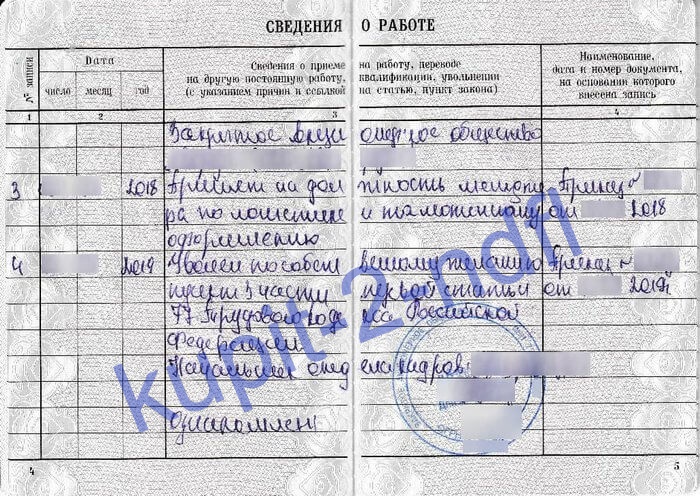 СВЕДЕНИЯ О РАБОТЕ
№ записи
Дата
число месяц год
Сведения о приеме на работу, переводе
на другую постоянную работу, квалификации, увольнении
(с указанием причин и ссылкой на статью, пункт закона)
Наименование,
дата и номер документа,
на основании которого
внесена запись
1 2 3 4
Закрытое акционерное общество
3 2018 Принят на должность менедже Приказ №
ра по логистике и таможенному от 2018
оформлению
4 2019 Уволен по собственному желанию Приказ №
пункт 3 части первой статьи от 2019
77 Трудового кодекса Российской
Федерации
Начальник отдела кадров
Ознакомлен
kupit-2-ndfl
4 5